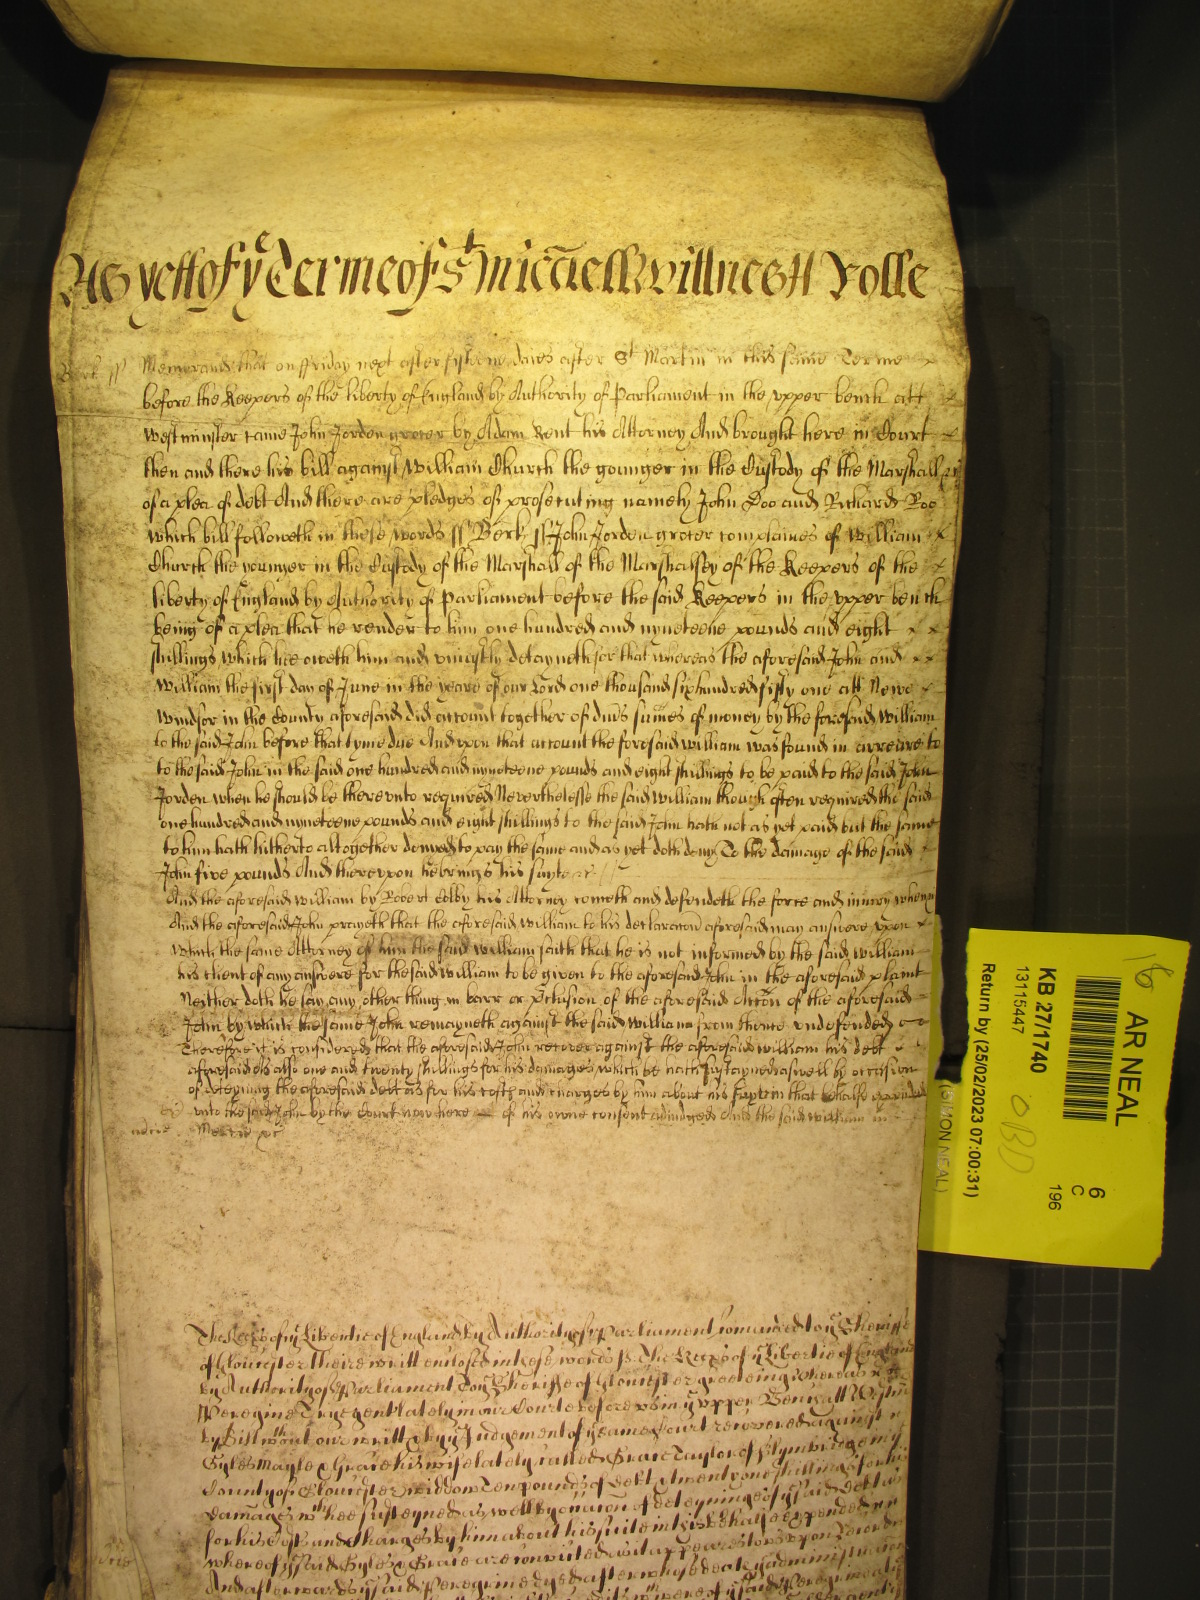 As yett of ye Terme of St Michaell Wittnes Rolle
Berk ss Memorand that on Friday next after fifteene daies after St Martin in this same Terme
before the Keepers of the liberty of England by Authority of Parliament in the upper bench att
Westminster came John Jorden grocer by Adam Kent his Attorney And brought here in Court
then and there his bill against William Church the younger in the Custody of the Marshall
of a plea of debt And there are pledges of prosecuting namely John Doo and Richard Roo
which bill followeth in these words ss Berk ss John Jorden grocer complaines of William
Church the younger in the Custody of the Marshall of the Marshalsey of the Keepers of the
liberty of England by Authority of Parliament before the said Keepers in the upper bench
being of a plea that he render to him one hundred and nyneteene pounds and eight
shillings which he oweth him and uniustly detayneth for that whereas the aforesaid John and
William the first day of June in the yeare of our Lord one thousand six hundred fifty one att Newe
Windsor in the County aforesaid did account together of divs sumes of money by the foresaid William
to the said John before that tyme due And upon that account the foresaid William was found in arreare to
to the said John in the said one hundred and nyneteene pounds and eight shillings to be paid to the said John
Jorden when he should be thereunto required Neverthelesse the said William though often required the said
one hundred and nyneteene pounds and eight shillings to the said John hath not as yet paid but the same
to him hath hitherto altogether denyed to pay the same and as yet doth deny To the damage of the said
John five pounds And thereupon he brings his suyte &c
And the aforesaid William by Robert Colby his Attorney cometh and defendeth the force and iniury when &c
And the aforesaid John prayeth that the aforesaid William to his declaracon aforesaid may answere upon
which the same Attorney of him the said William saith that he is not informed by the said William
his client of any answere for the said William to be given to the aforesaid John in the aforesaid plaint
Neither doth he say any other thing in barr or pclusion of the aforesaid Accon of the aforesaid
John by which the same John remayneth against the said William from thence undefended &c
Therefore it is considered that the aforesaid John recover against the aforesaid William his debt
aforesaid And also one and twenty shillings for his damages which he hath sustayned aswell by occasion
of deteyning the aforesaid debt as for his costs and charges by him about his suyte in that behalfe expended
unto the said John by the Court now here of his owne consent adiudged And the said William in
Mercie &c
The Keeps of ye Libertie of England by Authority of Parliament comanded to ye Sheriffe
of Gloucester their writt enclosed in these words ss The Keeps of ye Libertie of England
by Authority of Parliament To ye Sheriffe of Gloucester greeteing whereas
Peregine Tyce gent lately in our Courte before us in ye upper Bench att Westmr
by Bill without our writt & by ye Judgement of ye same Court recovered against
Gyles Mayle & Grace his wife lately called Grace Taylor of Slymbridge in ye
County of Gloucester widdow Ten pounds of debt & twenty one shillings for his
damages wch hee susteyned as well by occasion of deteyninge of ye said debt as
for his Costs and Charges by him about his suite in that behalfe expended
whereof ye said Gyles & Grace are convicted as it appeares to us upon record
And afterwards ye said Peregrine dyed after whose death ye administracion
AR NEAL
16
6
C
196
KB 27/1740
13115447
OBD
Return by (25/02/2023 07:00:31)
(SIMON NEAL)